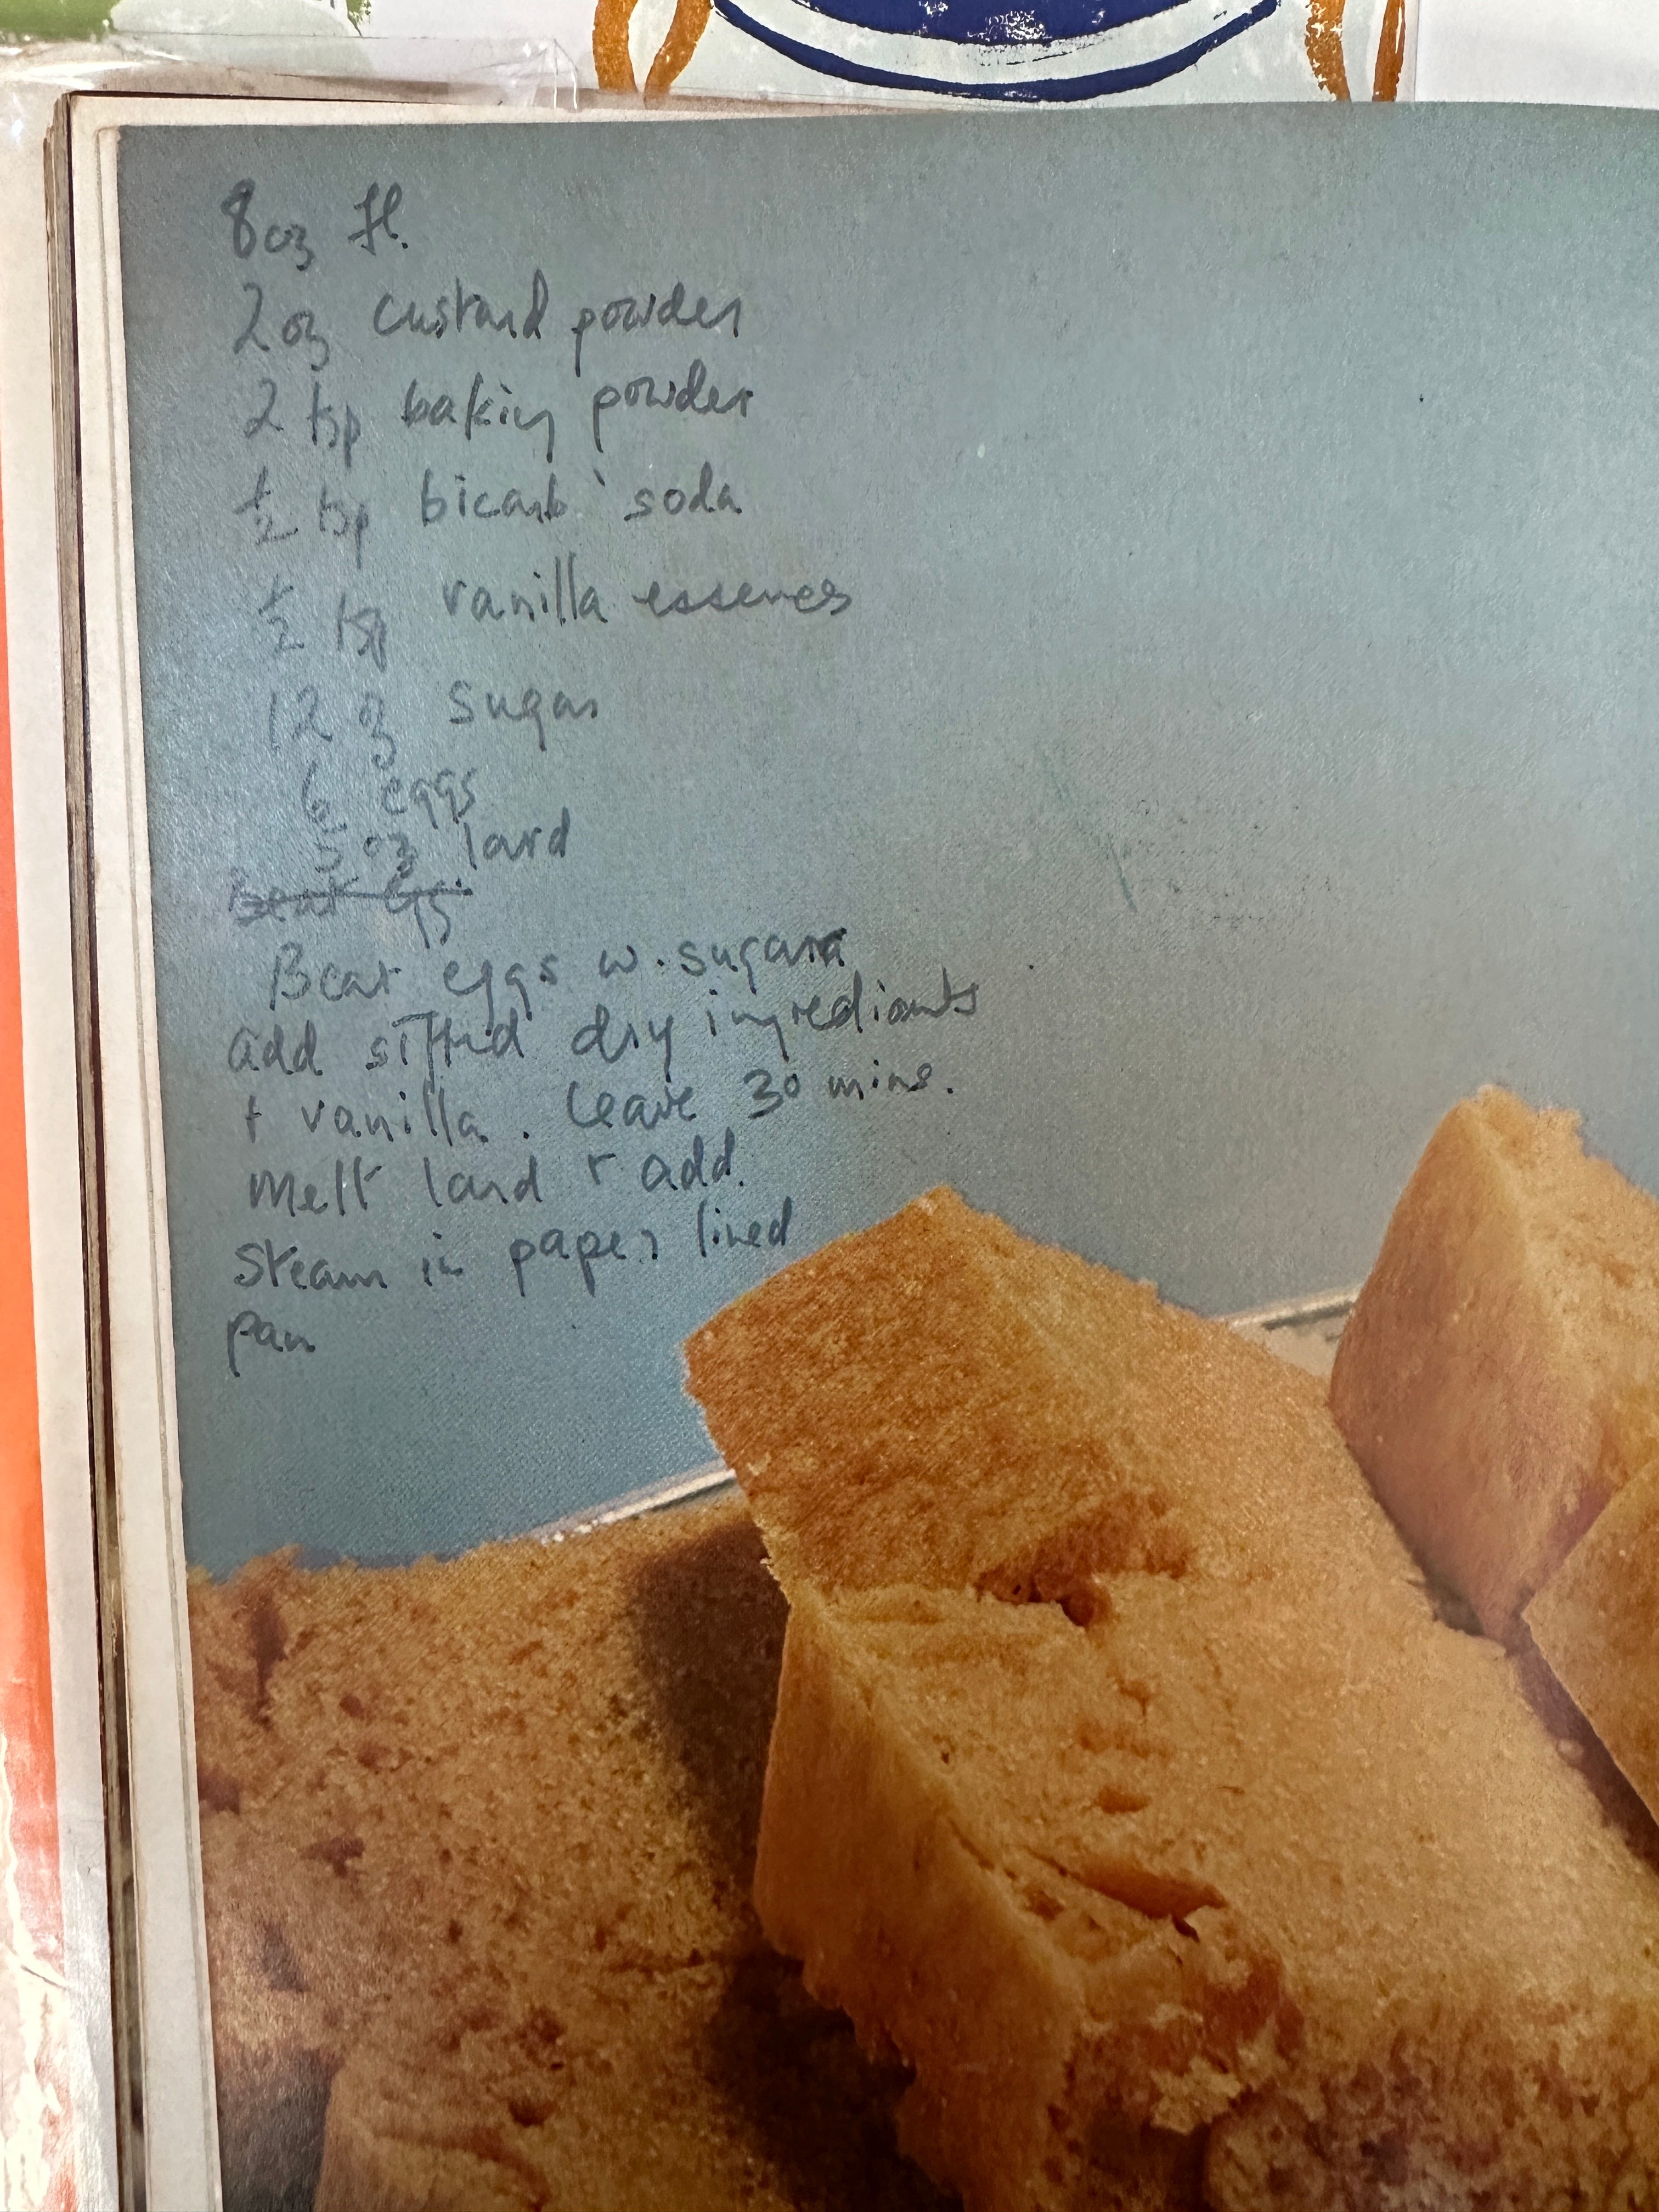 8oz fl.
2oz custard powder
2 tsp baking powder
½ tsp bicarb soda
½ tsp vanilla essence
12 oz sugar
6 eggs
5 oz lard
Beat eggs
Beat eggs w. sugar
add sifted dry ingredients
+ vanilla. Leave 30 mins.
Melt lard + add.
Steam in paper lined
pan